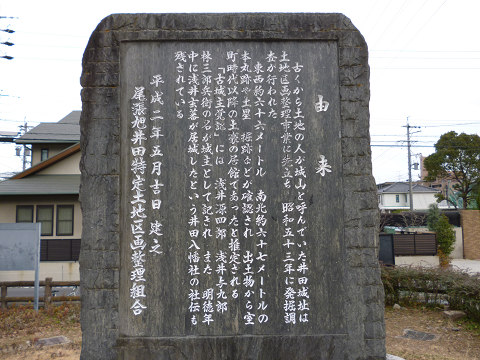 由来
古くから土地の人が城山と呼んでいた井田城址は
土地区画整理事業に先立ち 昭和五十三年に発掘調
査が行われた
東西約六十六メートル 南北約六十七メートルの
本丸跡や土塁 堀跡などが確認され 出土物から室
町時代以降の土豪の居館であったと推定される
「古城主覚」には 浅井源四郎 浅井与九郎
林三郎兵衛の名が城主として記され また 明徳年
中に浅井玄蕃が居城したという井田八幡社の社伝も
残されている
平成二年五月吉日 建之
尾張旭井田特定土地区画整理組合